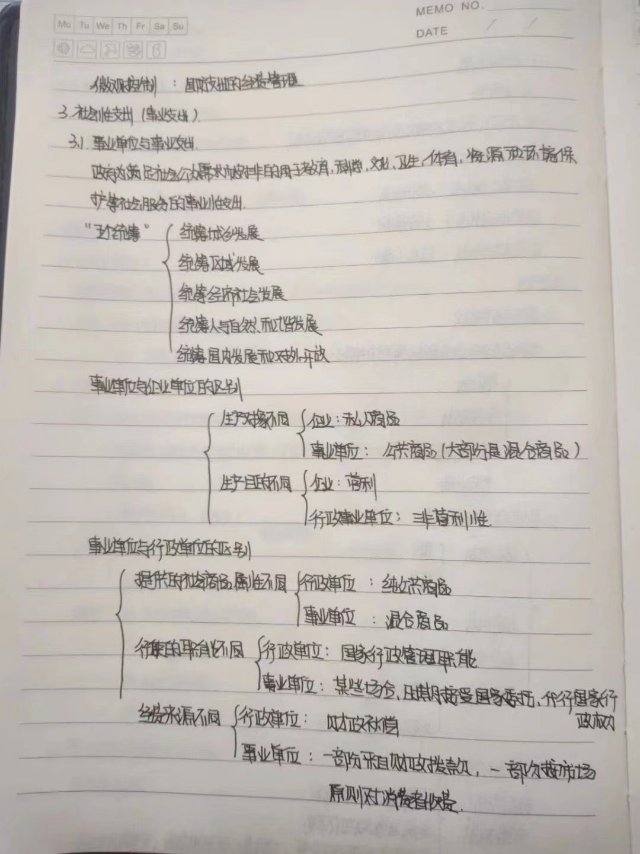 MEMO NO.
Mo Tu We Th Fr Sa Su
DATE / /
微观控制：国防支出的经费管理
3. 社会性支出（事业支出）
3.1. 事业单位与事业支出
政府为满足社会公共需求而安排的用于教育，科学，文化，卫生，体育，资源和环境保
护等社会服务的事业性支出
“五个统筹”
统筹城乡发展
统筹区域发展
统筹经济社会发展
统筹人与自然和谐发展
统筹国内发展和对外开放
事业单位与企业单位的区别
生产对象不同
企业：私人商品
事业单位：公共商品（大部分是混合商品）
生产目的不同
企业：营利
行政事业单位：非营利性
事业单位与行政单位的区别
提供的社会商品属性不同
行政单位：纯公共商品
事业单位：混合商品
行使的职能不同
行政单位：国家行政管理职能
事业单位：某些场合，由其接受国家委托，代行国家行
政权力
经费来源不同
行政单位：财政补偿
事业单位：一部分来自财政拨款，一部分按市场
原则对消费者收费.